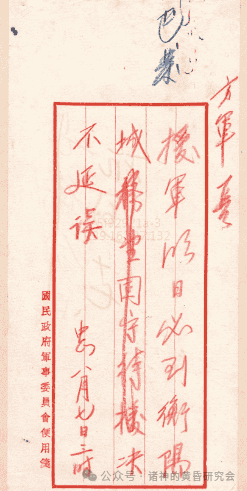 方軍長
援軍明日必到衡陽
城務望固守待援決
不延誤
八月七日
國民政府軍事委員會便用箋
公众号：诸神的黄昏研究会